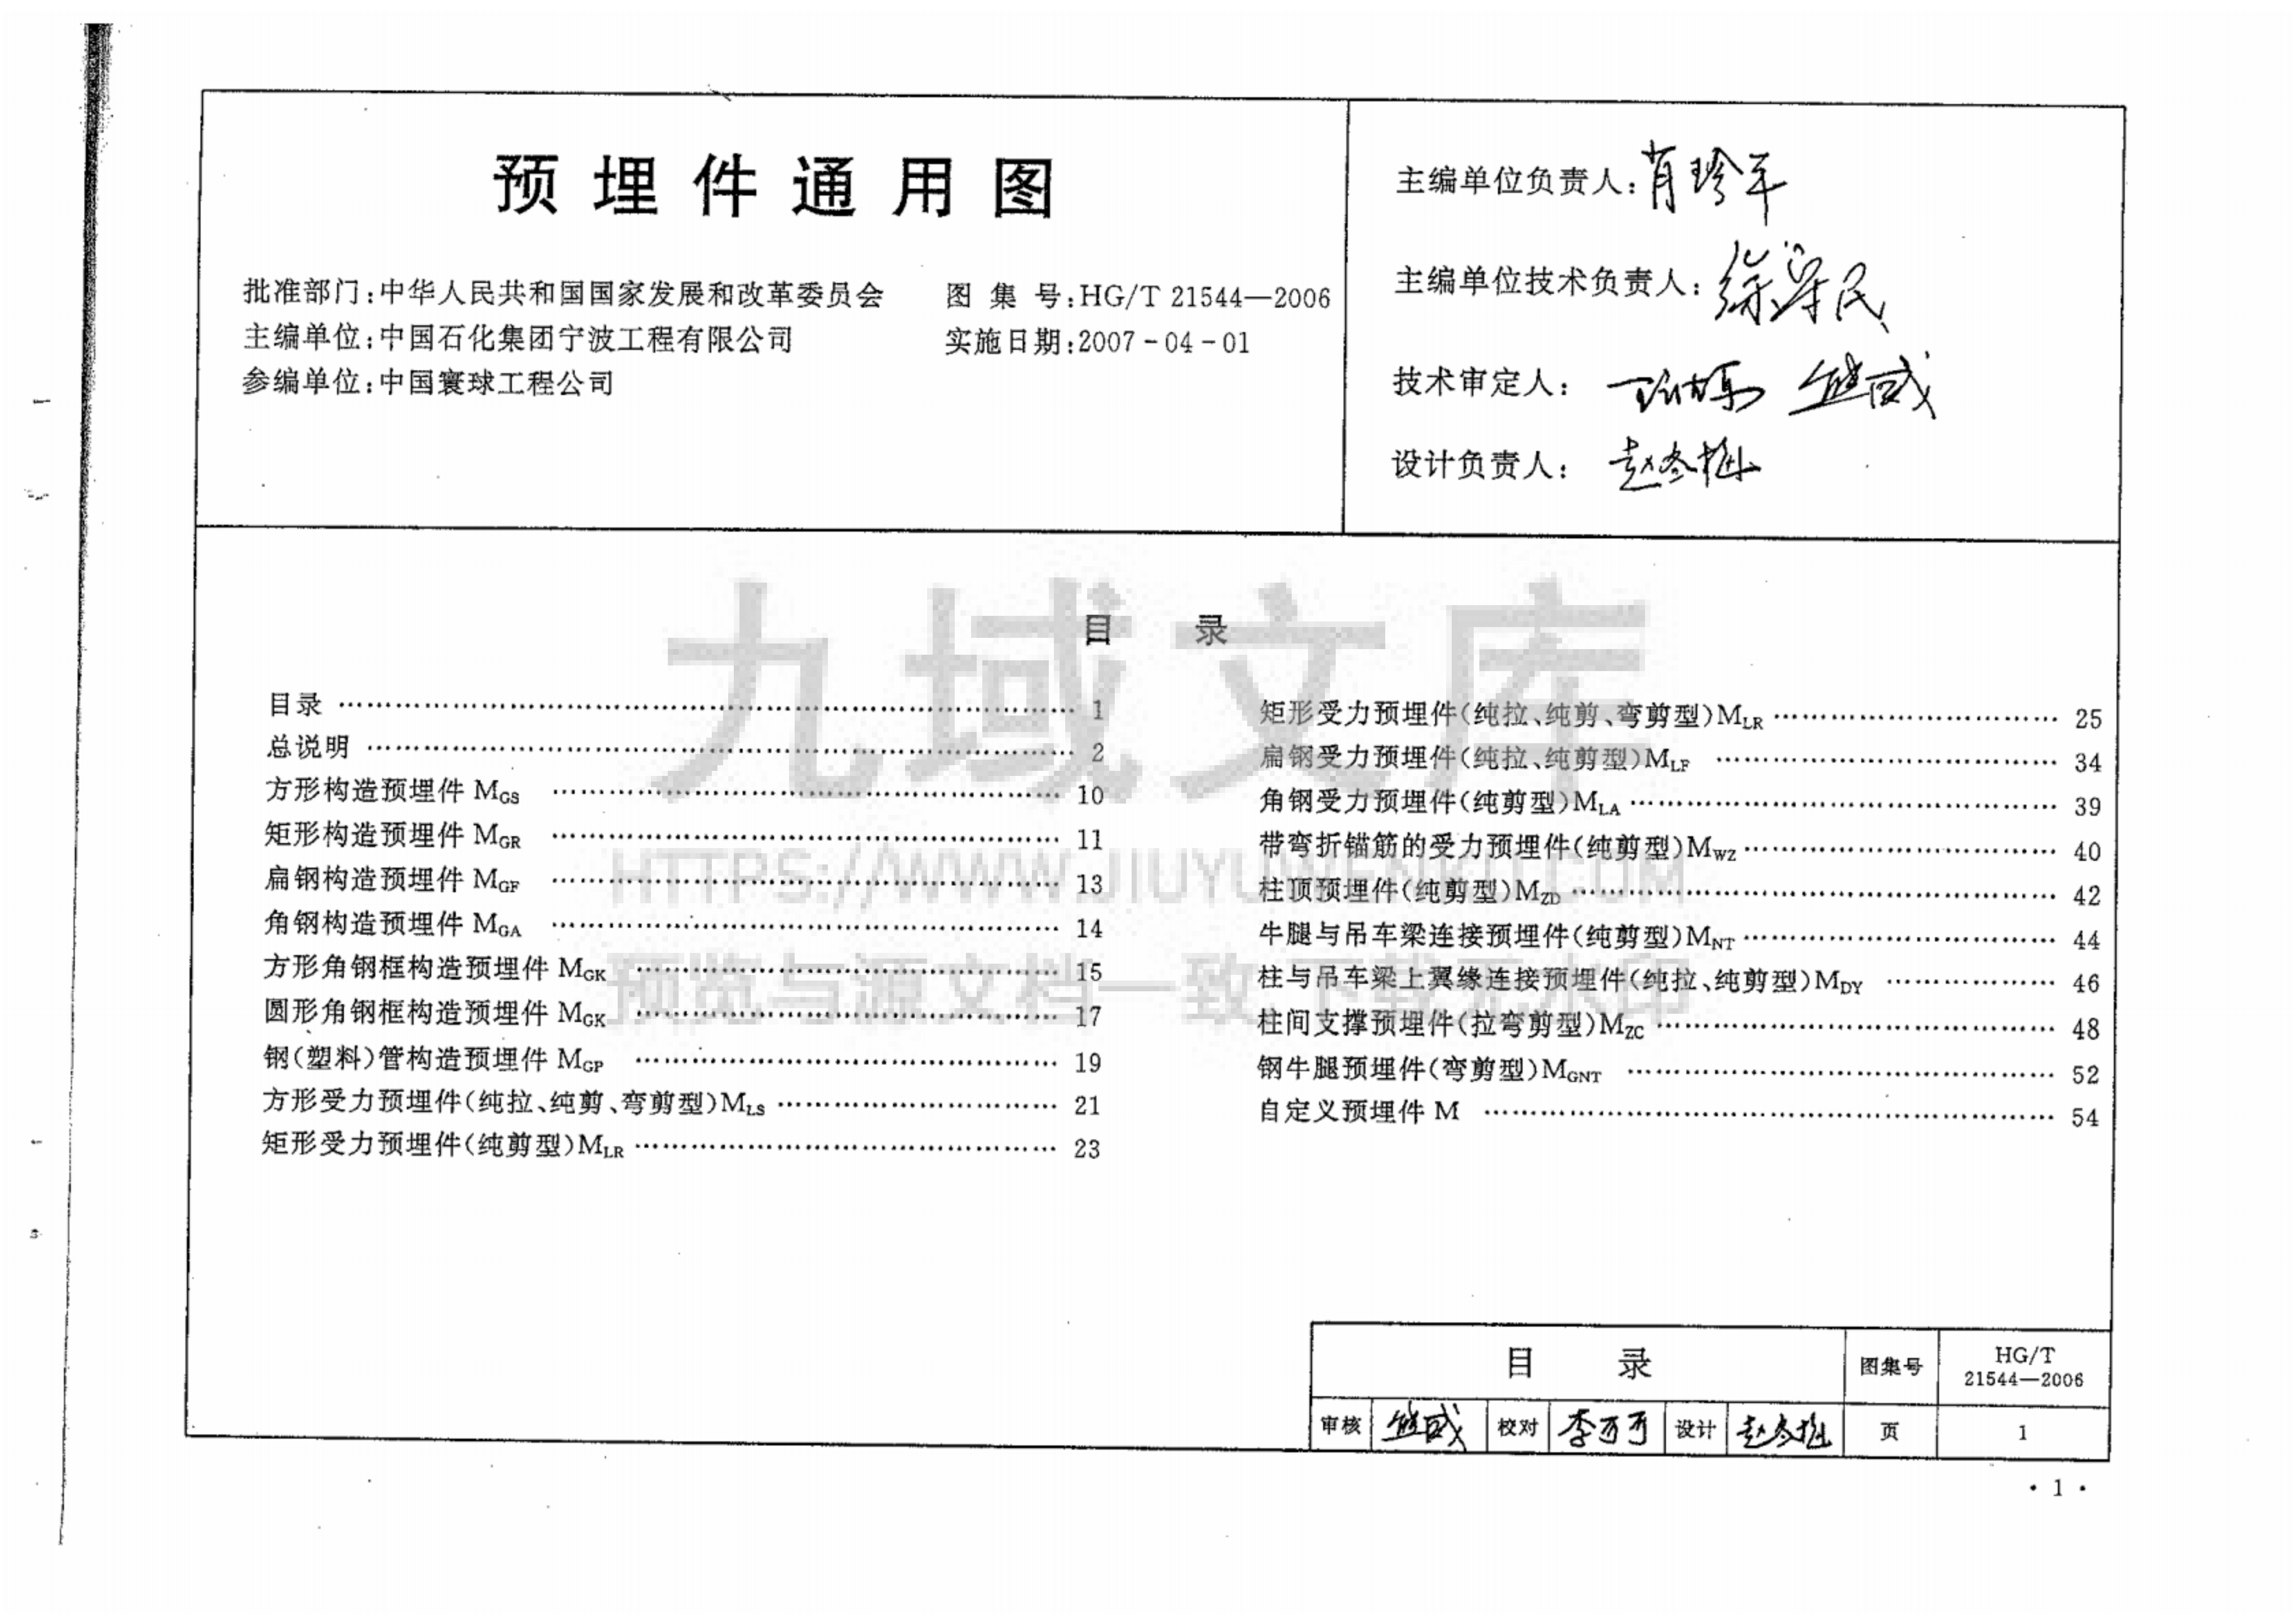 预埋件通用图
批准部门:中华人民共和国国家发展和改革委员会
主编单位:中国石化集团宁波工程有限公司
参编单位:中国寰球工程公司
图 集 号:HG/T 21544—2006
实施日期:2007-04-01
主编单位负责人:
主编单位技术负责人:
技术审定人:
设计负责人: 赵冬梅
目 录
目录 …… 1
总说明 …… 2
方形构造预埋件 MGS …… 10
矩形构造预埋件 MGR …… 11
扁钢构造预埋件 MGF …… 13
角钢构造预埋件 MGA …… 14
方形角钢框构造预埋件 MGK …… 15
圆形角钢框构造预埋件 MGK …… 17
钢(塑料)管构造预埋件 MGP …… 19
方形受力预埋件(纯拉、纯剪、弯剪型)MLS …… 21
矩形受力预埋件(纯剪型)MLR …… 23
矩形受力预埋件(纯拉、纯剪、弯剪型)MLR …… 25
扁钢受力预埋件(纯拉、纯剪型)MLF …… 34
角钢受力预埋件(纯剪型)MLA …… 39
带弯折锚筋的受力预埋件(纯剪型)MWZ …… 40
柱顶预埋件(纯剪型)MZD …… 42
牛腿与吊车梁连接预埋件(纯剪型)MNT …… 44
柱与吊车梁上翼缘连接预埋件(纯拉、纯剪型)MDY …… 46
柱间支撑预埋件(拉弯剪型)MZC …… 48
钢牛腿预埋件(弯剪型)MGNT …… 52
自定义预埋件 M …… 54
九域文库
HTTPS://WWW.JIUYUWENKU.COM
预览与源文档一致 下载无水印
目 录
图集号
HG/T
21544—2006
审核
校对
设计 赵冬梅
页
1
· 1 ·